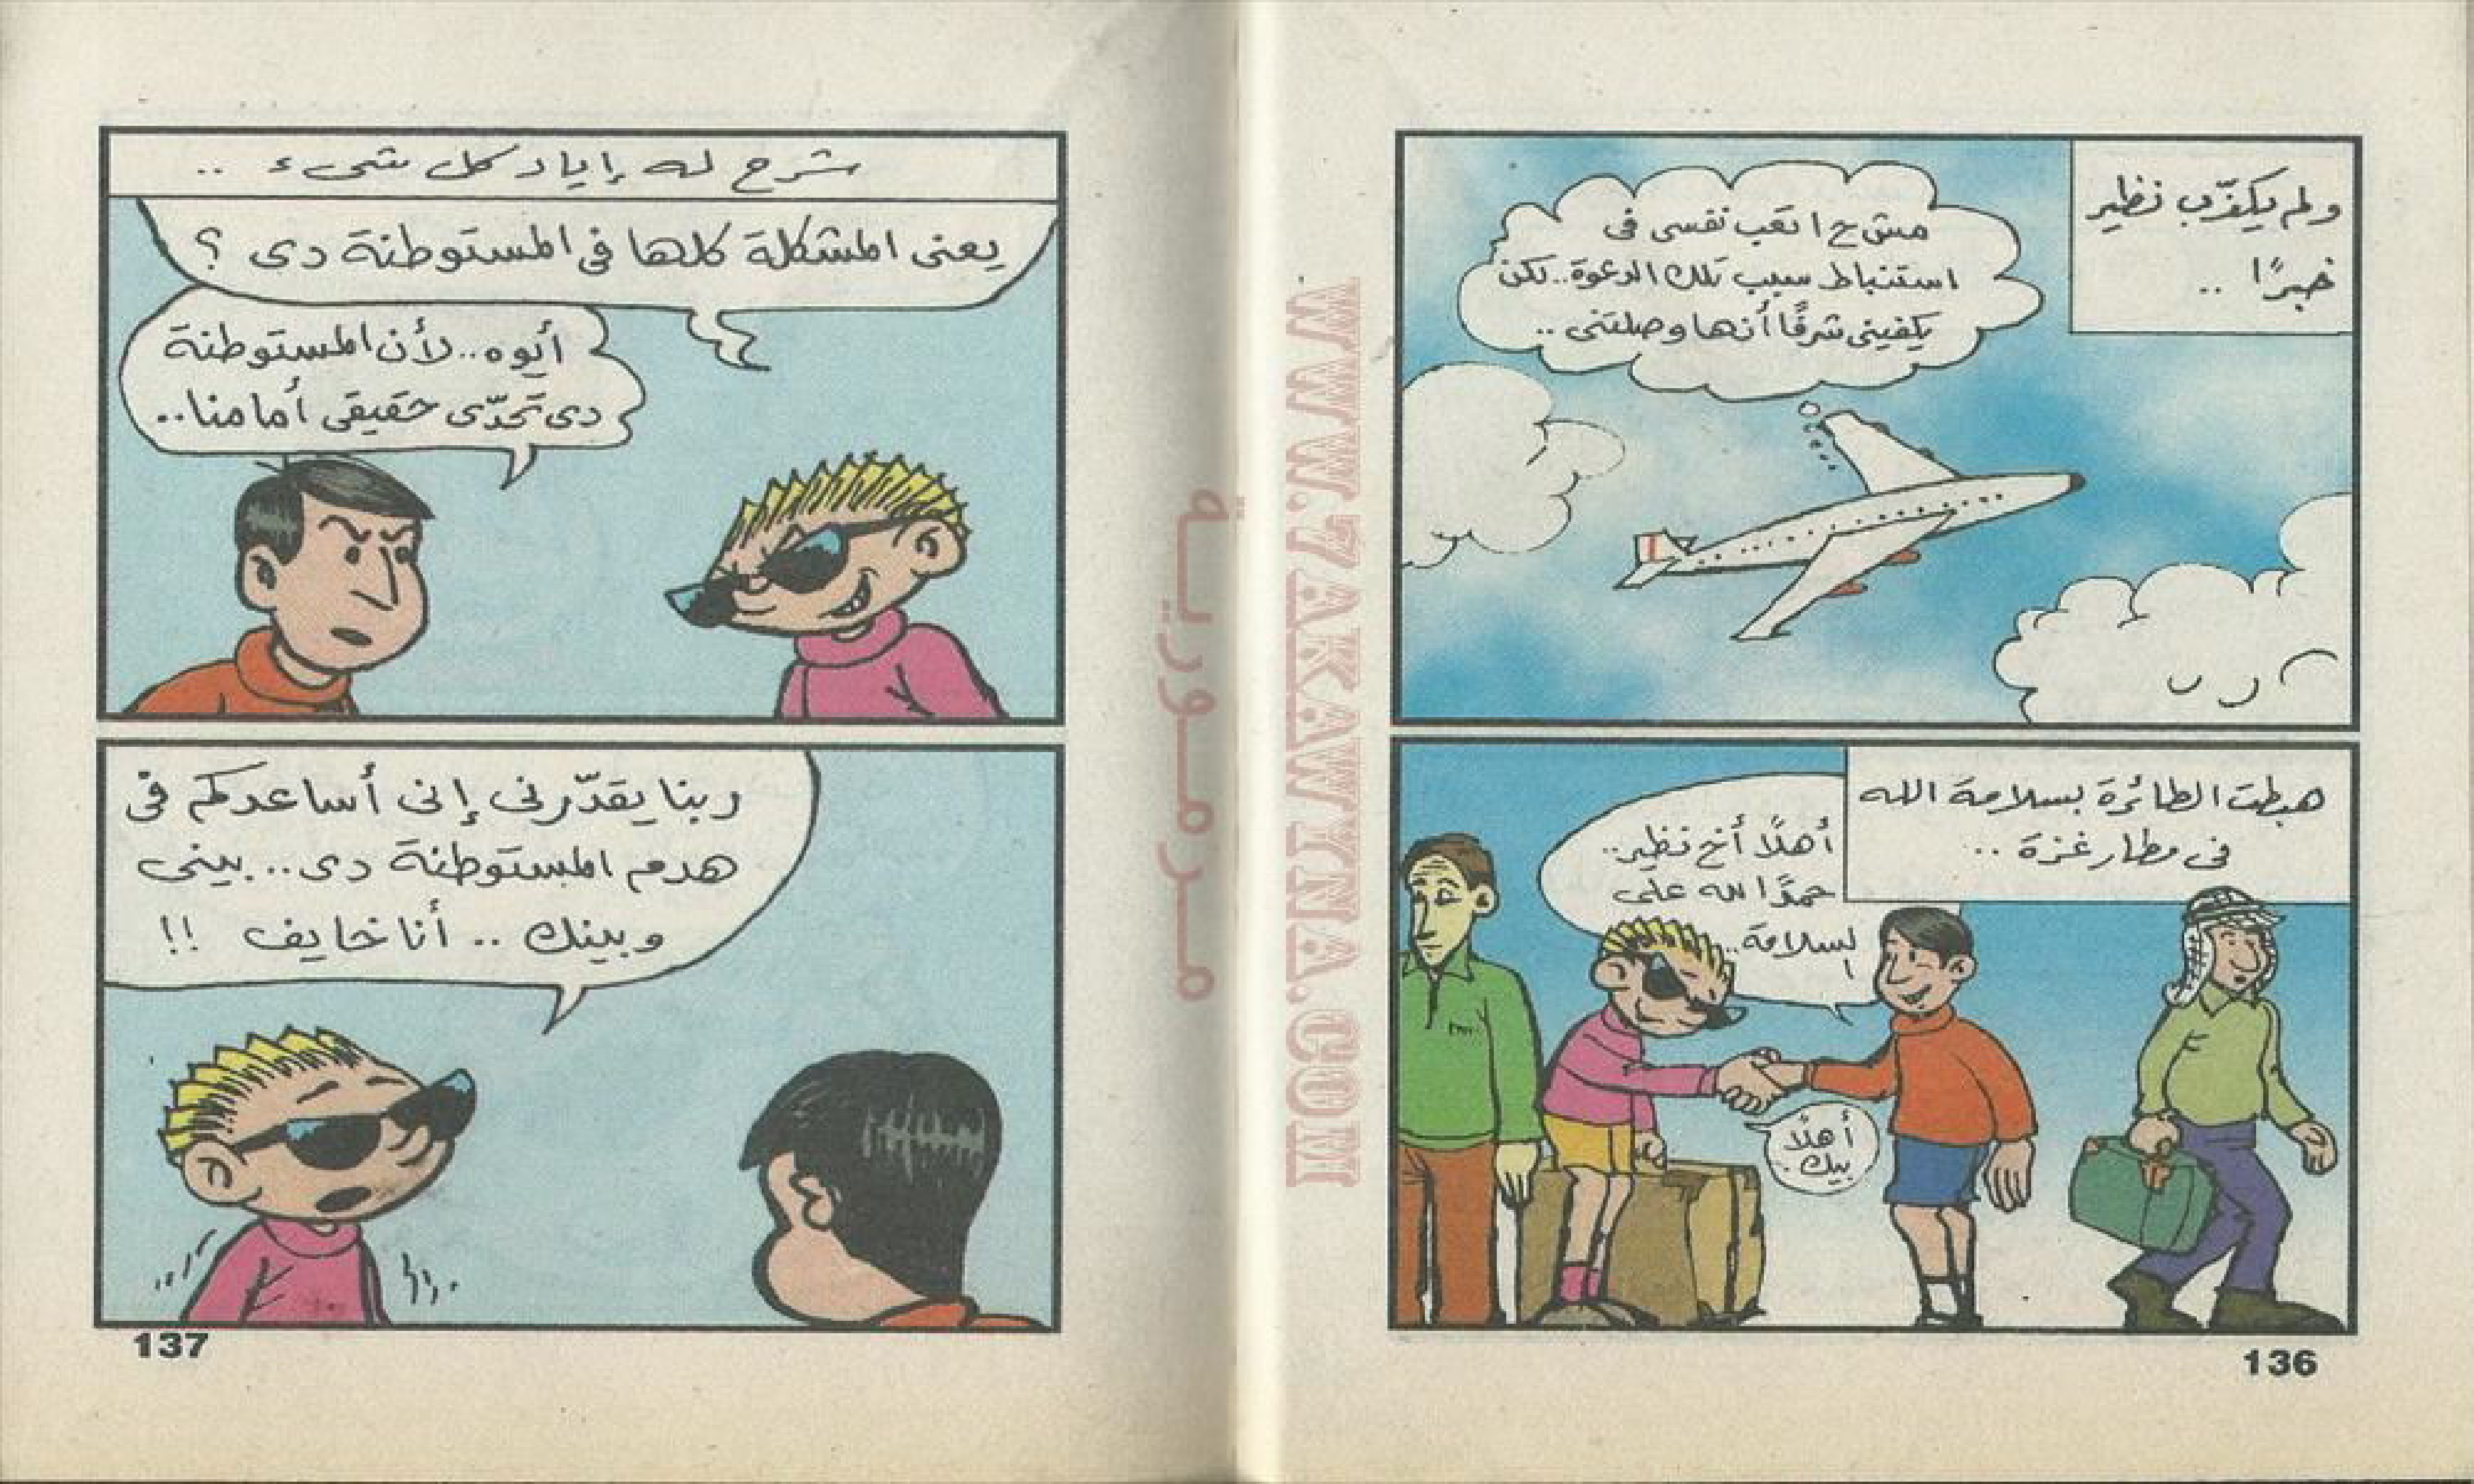 ولم يكذّب نظير
خبرًا ..
مش ح اتعب نفسى فى
استنباط سبب تلك الدعوة.. لكن
يكفينى شرفًا أنها وصلتنى ..
هبطت الطائرة بسلامة الله
فى مطار غزة ..
أهلًا أخ نظير..
حمدًا لله على
السلامة..
أهلًا
بيك.
136
شرح له إياد كل شىء ..
يعنى المشكلة كلها فى المستوطنة دى ؟
أيوه.. لأن المستوطنة
دى تحدّى حقيقى أمامنا..
ربنا يقدّرنى إنى أساعدكم فى
هدم المستوطنة دى... بينى
وبينك .. أنا خايف !!
137
WWW.ZAKAWINA.COM
مزمورية